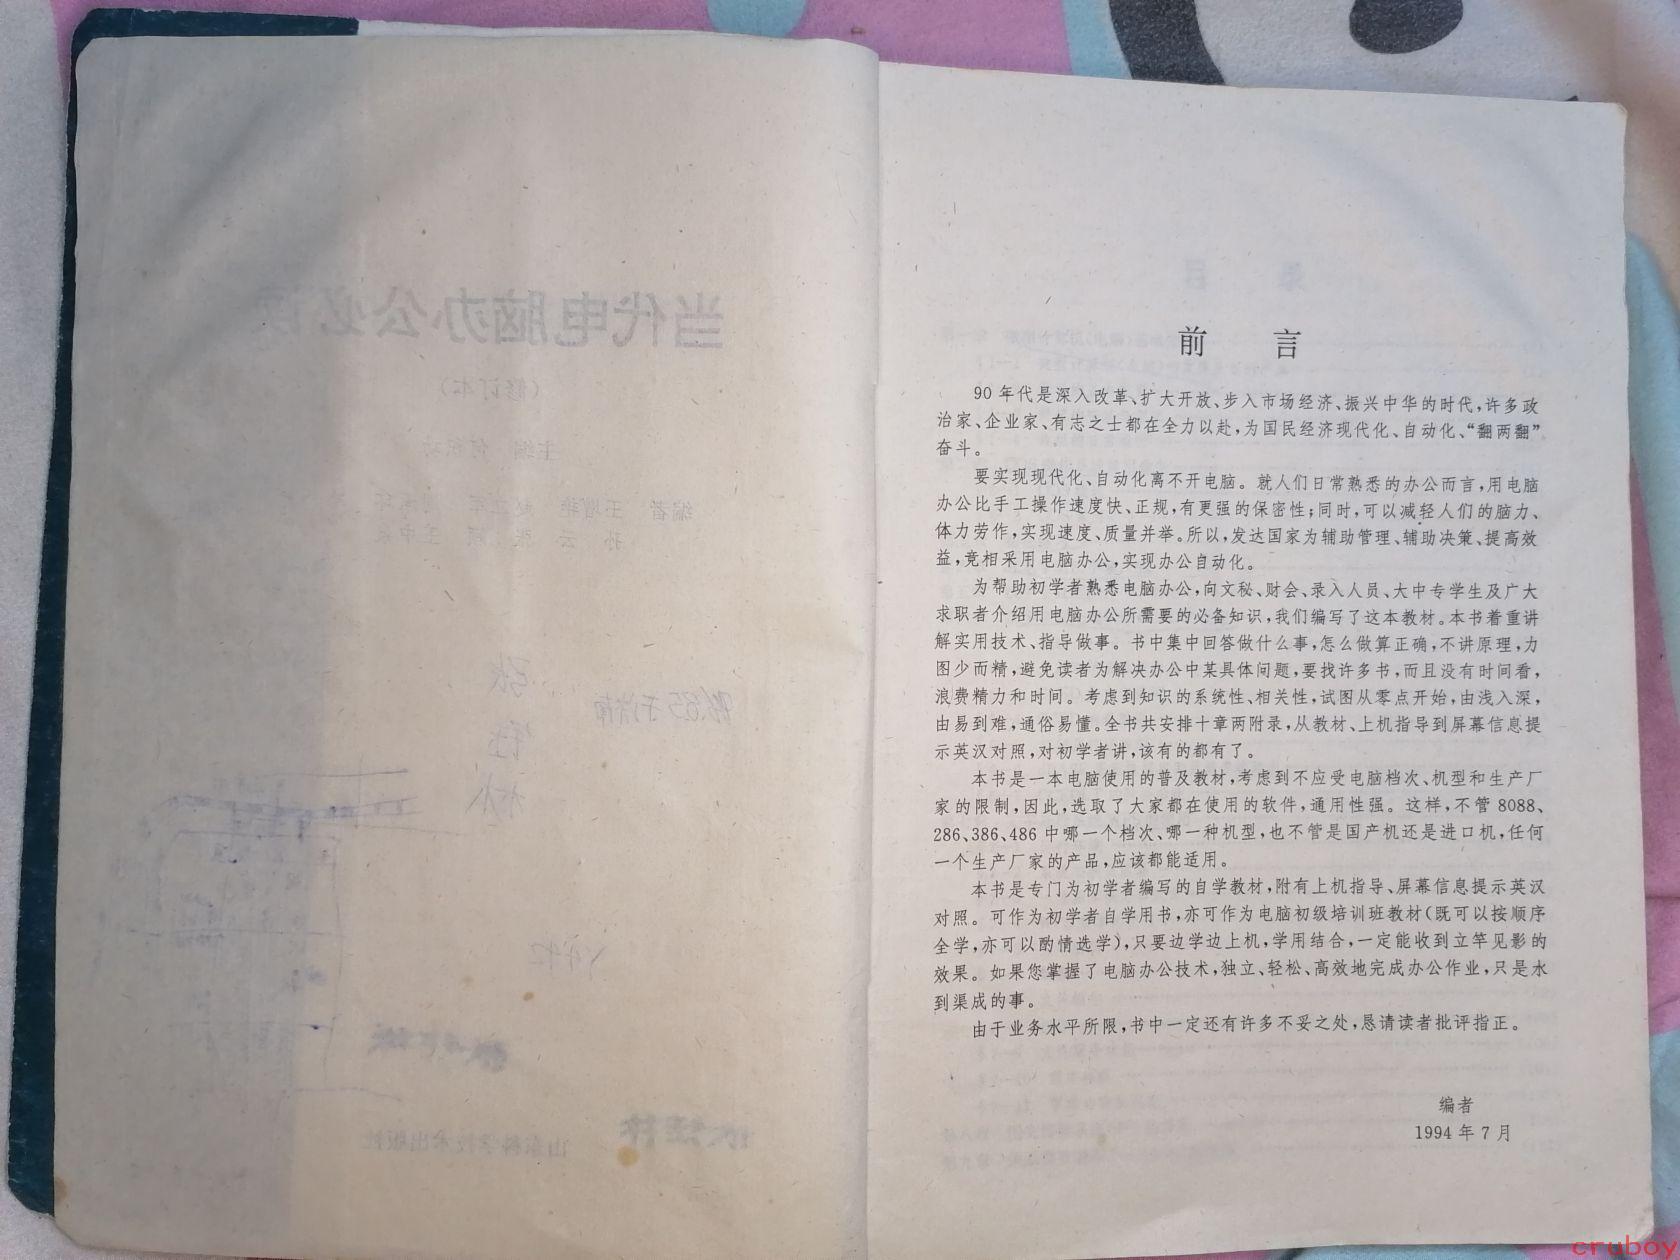 当代电脑办公必读
（修订本）
主编 何
编者 王增艳
孙 云
山东科学技术出版社
前 言
90年代是深入改革、扩大开放、步入市场经济、振兴中华的时代,许多政
治家、企业家、有志之士都在全力以赴,为国民经济现代化、自动化、“翻两翻”
奋斗。
要实现现代化、自动化离不开电脑。就人们日常熟悉的办公而言,用电脑
办公比手工操作速度快、正规,有更强的保密性;同时,可以减轻人们的脑力、
体力劳作,实现速度、质量并举。所以,发达国家为辅助管理、辅助决策、提高效
益,竞相采用电脑办公,实现办公自动化。
为帮助初学者熟悉电脑办公,向文秘、财会、录入人员、大中专学生及广大
求职者介绍用电脑办公所需要的必备知识,我们编写了这本教材。本书着重讲
解实用技术、指导做事。书中集中回答做什么事,怎么做算正确,不讲原理,力
图少而精,避免读者为解决办公中某具体问题,要找许多书,而且没有时间看,
浪费精力和时间。考虑到知识的系统性、相关性,试图从零点开始,由浅入深,
由易到难,通俗易懂。全书共安排十章两附录,从教材、上机指导到屏幕信息提
示英汉对照,对初学者讲,该有的都有了。
本书是一本电脑使用的普及教材,考虑到不应受电脑档次、机型和生产厂
家的限制,因此,选取了大家都在使用的软件,通用性强。这样,不管8088、
286、386、486中哪一个档次、哪一种机型,也不管是国产机还是进口机,任何
一个生产厂家的产品,应该都能适用。
本书是专门为初学者编写的自学教材,附有上机指导、屏幕信息提示英汉
对照。可作为初学者自学用书,亦可作为电脑初级培训班教材(既可以按顺序
全学,亦可以酌情选学),只要边学边上机,学用结合,一定能收到立竿见影的
效果。如果您掌握了电脑办公技术,独立、轻松、高效地完成办公作业,只是水
到渠成的事。
由于业务水平所限,书中一定还有许多不妥之处,恳请读者批评指正。
编者
1994年7月
cruboy